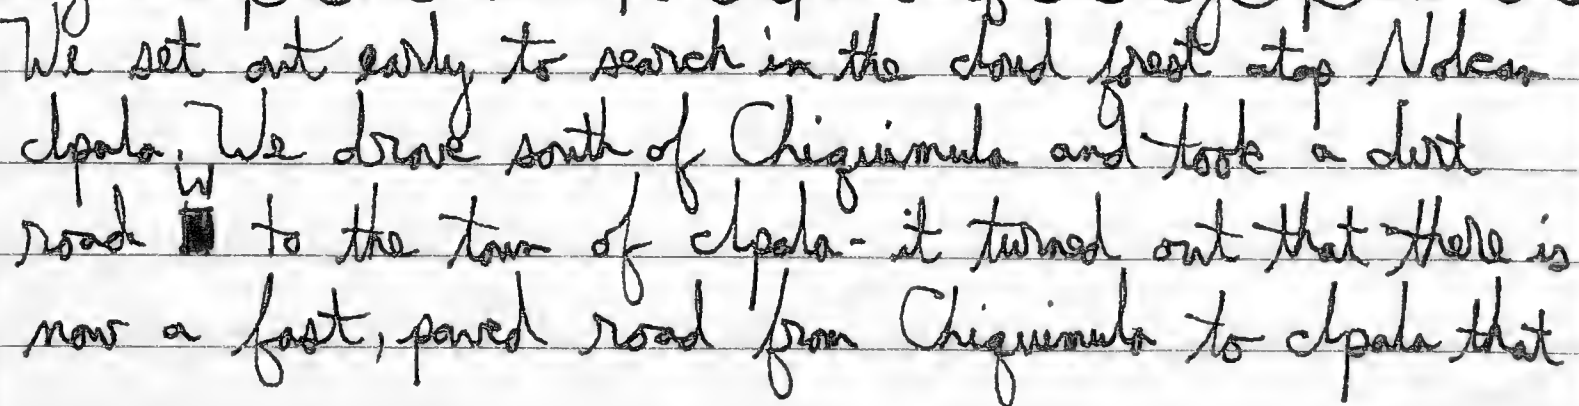 We set out early to search in the cloud forest atop Volcan
Ipala. We drove south of Chiquimula and took a dirt
road W to the town of Ipala - it turned out that there is
now a fast, paved road from Chiquimula to Ipala that